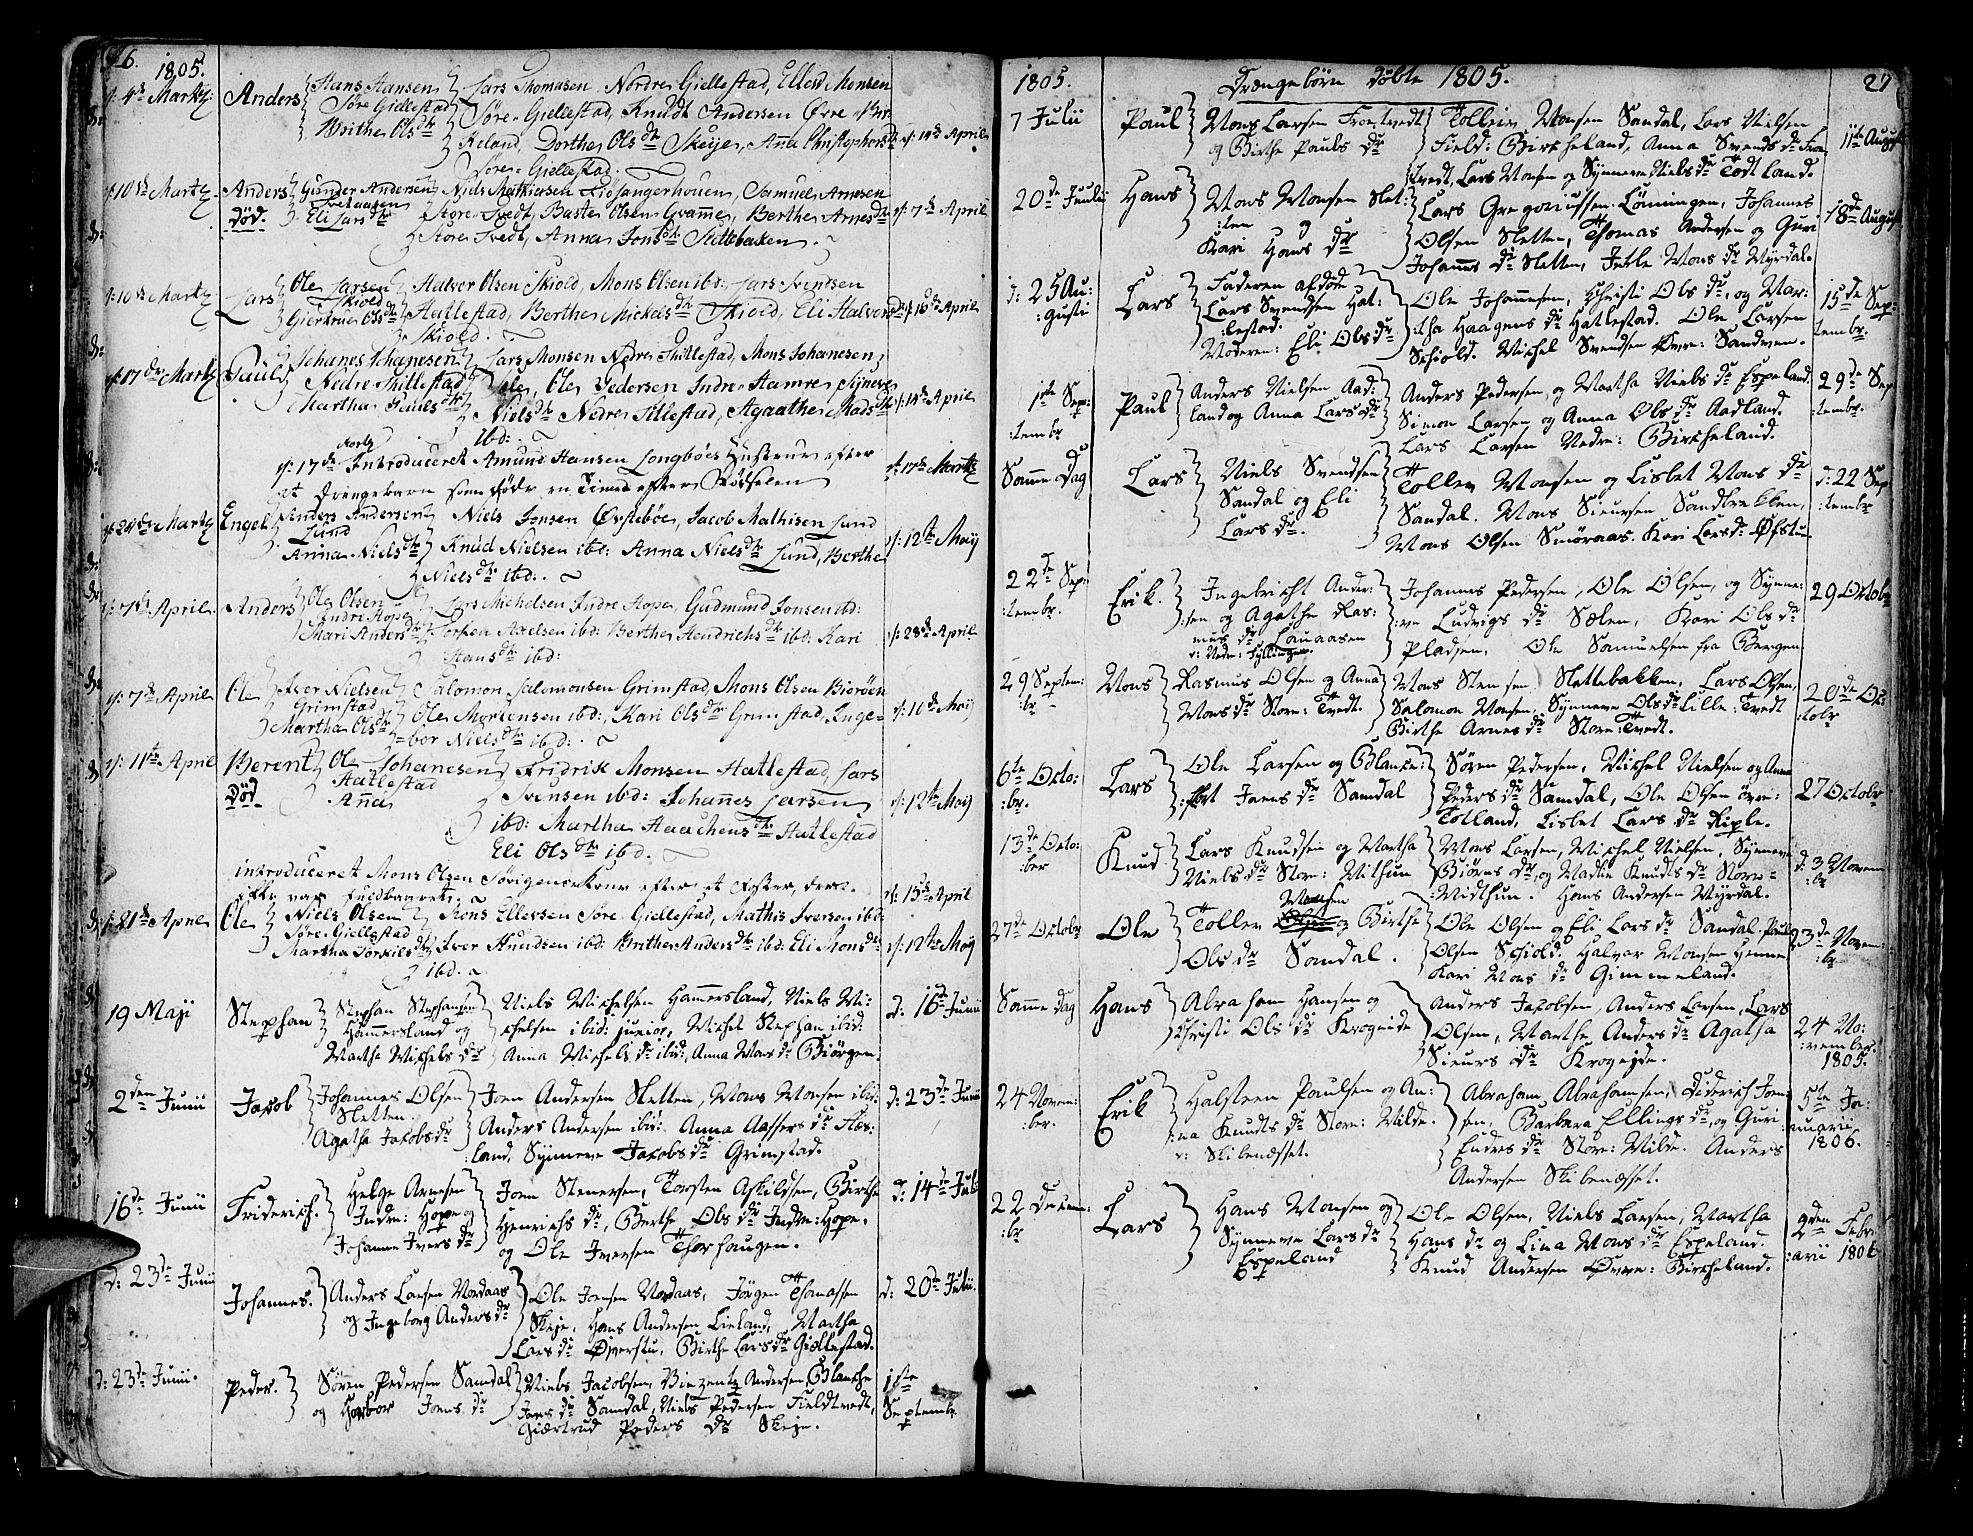 26.
1805.
d: 4de Martz
Anders
Hans Hansen
Søre Giellestad
Brithe Olsdr
Lars Thomasen Nordre Giellestad, Ellend Monsen
Søre Giellestad, Knudt Andersen Øvre Birke
land, Dorthe Olsdr Skeje, Ana Christophersdr
Søre Giellestad.
d: 14de April
d: 10de Martz
Anders
død.
Gunder Andersen
Eli Larsdr
Niels Mathiesen Lidsangerhouen, Samuel Arnesen
Store Tvedt, Baste Olsen Gramme, Berthe Arnesdr
Store Tvedt, Anna Jonsdr Slettebaken.
d: 7de April
d: 10de Martz
Lars
Ole Larsen
Skiold
Giertrue Olsdr
Halvor Olsen Skiold, Mons Olsen ibd: Lars Svendsen
Hatlestad, Berthe Mickelsdr Skiold, Eli Halvorsdr
Skiold.
d: 16de April
d: 17de Martz
Paul
Johanes Johanesen
Nedre Tittlestad
Martha Paulsdr
Lars Monsen Nedre Tittlestad, Mons Johanesen,
Ole Pedersen Indre Hamre, Signeve
Nielsdr Nedre Titlestad, Agaathe Madsdr
ibd:
d: 14de April
d: 17de Martz Introduceret Amund Hansen Longbøes Hustrue efter
et Drengebarn som døde en Time efter Fødselen
d: 17de Martz
d: 24de Martz
Engel
Anders Andersen
Lund
Anna Nielsdr
Niels Jonsen Øvstebøe, Jacob Mathisen Lund
Knud Nielsen ibd: Anna Nielsdr Lund, Berthe
Nielsdr ibd:
d: 12te Maij
d: 7de April
Anders
Ole Olsen
Indre Hope
Mari Andersdr
Lars Michelsen Indre Hope, Gudmund Jonsen ibd:
Torken Axelsen ibd: Berthe Hendrichsdr ibd: Kari
Hansdr ibd:
d: 28de April
d: 7de April
Ole
Iver Nielsen
Grimstad
Martha Olsdr
Salomon Salomonsen Grimstad, Mons Olsen Biørøen
Ole Mortensen ibd:, Kari Olsdr Grimstad, Inge-
bor Nielsdr ibd:
d: 10de Maij
d: 11te April
Berent
Død.
Ole Johanesen
Hatlestad
Ana
Fridrik Monsen Hatlestad, Lars
Svensen ibd: Johannes Larsen
ibd: Martha Haachensdr Hatlestad
Eli Olsdr ibd.
d: 12te Maij
introduceret Mons Olsen Søvigens kone efter et Foster, der
ikke var fuldbaaret.
d: 15de April
d: 21de April
Ole
Niels Olsen
Søre Giellestad
Martha Torkilsdr
Mons Ellevsen Søre Giellestad, Mathis Iversen ibd:
Iver Knudsen ibd: Brithe Andersdr ibd: Eli Monsdr
ibd.
d: 12te Maij
19 Maji
Stephan
Stephan Stephansen
Hammersland og
Marthe Michelsdr
Niels Michelsen Hammersland, Niels Mi-
chelsen ibid: junior, Michel Stephan ibid:
Anna Michelsdr ibid:, Anna Marsdr Biørgen.
d: 16de Junii
2den Junii
Jacob
Johannes Olsen
Sletten
Agatha Jacobsdr
Joen Andersen Sletten, Mons Monsen ibid:
Anders Andersen ibid: Anna Aassersdr Flæs-
land, Synneve Jacobsdr Grimstad.
d: 23de Junii
16de Junii
Friderich.
Helge Arnesen
Indre: Hope og
Johanne Iversdr
Joen Stenersen, Torsten Askildsen, Birthe
Henrichsdr, Berthe Olsdr Indre: Hope,
og Ole Iversen Thorhaugen.
d: 14de Julii
d: 23de Junii
Johannes.
Anders Larsen Nordaas
og Ingeborg Andersdr
Ole Joensen Nordaas, Jörgen Thomassen
Skeje, Hans Andersen Lieland, Martha
Larsdr Øverstu, Birthe Larsdr Giellestad.
d: 20de Julii.
d: 23de Junii.
Peder.
Sören Pedersen Samdal
og Joensdr
Niels Jacobsen, Vinzentz Andersen, Blanche
Joensdr Samdal, Niels Pedersen Fieldtvedt,
Giærtrud Pedersdr Skeje.
1ste
Septembr.
1805.
Drængebörn döbte 1805.
27
7 Julii
Paul
Mons Larsen Frøstvedt
og Birthe Paulsdr
Tollev Monsen Sandal, Lars Nielsen
Field: Birkeland, Anna Svendsdr Frø-
tvedt, Lars Monsen og Synneve Nielsdr Todtland.
11te August
20de Julii
Hans
Mons Monsen Slet:
:ten og
Kari Hansdr
Lars Gregoriussen Lönningen, Johannes
Olsen Sletten, Thomas Andersen og Guri
Johannesdr Sletten, Jutle Monsdr Myrdal.
18de August
d: 25 Au:
:gusti
Lars
Faderen afdöde
Lars Svendsen Hat:
:lestad.
Moderen: Eli Olsdr
Ole Johannesen, Christi Olsdr, og Mar:
:tha Haagensdr Hatlestad. Ole Larsen
Schiold. Michel Svendsen Øvre: Sandven.
15de Sep:
tembr.
1ste Sep:
:tembr
Paul
Anders Nielsen Aad:
land og Anna Larsdr
Anders Pedersen, og Martha Nielsdr Espeland.
Simon Larsen og Anna Olsdr Aadland.
Lars Larsen Nedre: Birkeland.
29de Sep
:tembr.
Samme Dag
Lars
Niels Svendsen
Sandal og Eli
Larsdr.
Tollev Monsen og Lisbet Monsdr
Sandal. Mons Siursen Sandbrekken,
Mons Olsen Smöraas. Kari Larsdr Øfstun
d: 22 Sep
:tembr
22de Sep:
:tembr.
Erik.
Ingebricht Ander:
:sen og Agathe Ras:
musdr Lauaasen
v: Nedre: Fyllingen
Johannes Pedersen, Ole Olsen, og Synne:
:ve Ludvigsdr Sælen, Kari Olsdr
Pladsen, Ole Samuelsen fra Bergen.
29 Octobr
29 Septem:
:br
Mons
Rasmus Olsen og Anna
Monsdr Store: Tvedt.
Mons Stensen Slettebakken, Lars Olsen,
Salomon Monsen, Synneve Olsdr Lille: Tvedt
Birthe Arnesdr Store: Tvedt.
20de Oc:
:tobr
6te Octo:
:br.
Lars
Ole Larsen og Blanse:
:flet Joensdr Samdal
Sören Pedersen, Michel Nielsen og Anna
Pedersdr Samdal, Ole Olsen övre:
Totland, Lisbet Larsdr Riple.
27 Octobr
13de Octo:
:ber
Knud
Lars Knudsen og Martha
Nielsdr Store: Mithun
Mons Larsen, Michel Nielsen, Synneve
Biörnsdr, og Madle Knudtsdr Store=
:Midthun. Hans Andersen Myrdal.
d: 3 Novem
:br
27de Octobr
Ole
Monsen
Tollev og Birthe
Olsdr Sandal.
Ole Olsen og Eli Larsdr Sandal. Paul
Olsen Schiold. Halvor Monsen Henne
Kari Monsdr Gimmeland.
23de Novem:
:br
Samme Dag
Hans
Abraham Hansen og
Christi Olsdr Krogeide
Anders Jacobsen, Anders Larsen, Lars
Olsen, Marthe Andersdr Agatha
Sieursdr Krogejde.
24 No:
:vember.
1805.
24 Novem:
:ber.
Erik
Halsteen Paulsen og An:
:na Knudtsdr Store: Milde.
v: Skibenæsset.
Abraham Abrahamsen, Diderich Joen:
sen, Barbara Ellingsdr, og Guri
Endresdr Store: Milde. Anders
Andersen Skibenæsset.
5te Ja:
nuarii
1806.
22 Decem:
:br
Lars
Hans Monsen og
Synneve Larsdr
Espeland
Ole Olsen, Niels Larsen, Martha
Hansdr og Lina Monsdr Espeland.
Knud Andersen Øvre: Birkeland.
9den Febr
:arii 1806